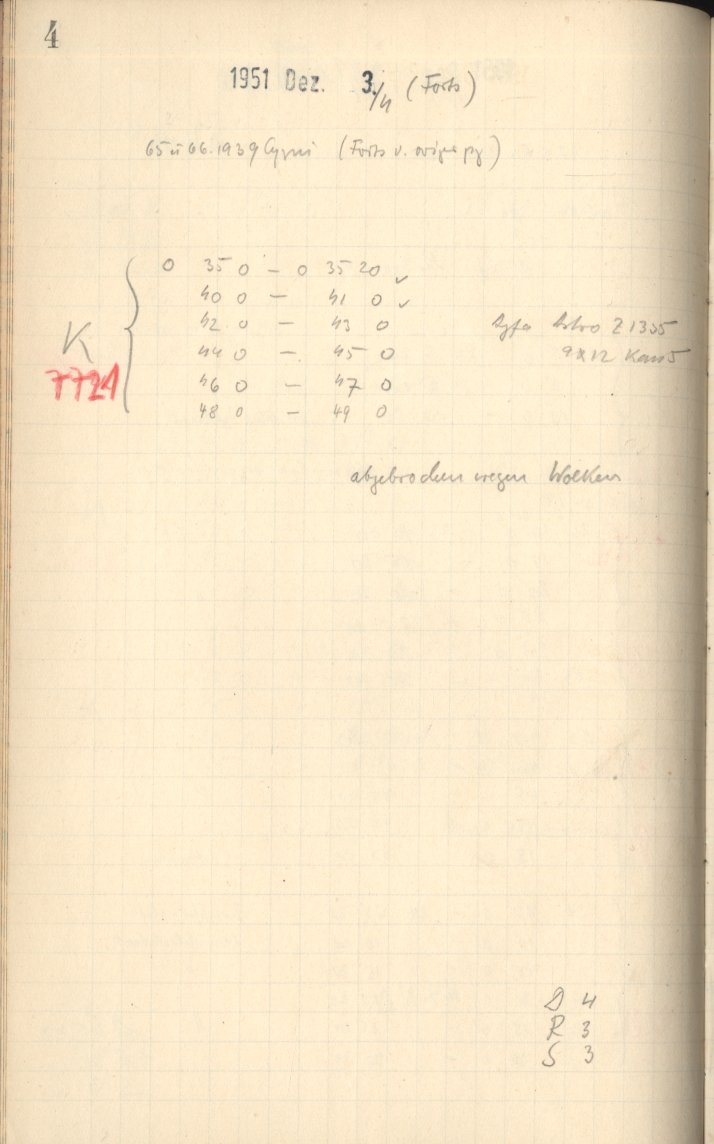 4
1951 Dez. 3./4 (Forts)
65 u 66. 1939 Cygni (Forts v. voriger pg)
0 35 0 — 0 35 20 ✓
40 0 — 41 0 ✓
42 0 — 43 0
44 0 — 45 0
46 0 — 47 0
48 0 — 49 0
K
7721
Agfa Astro Z 1335
9x12 Kass 5
abgebrochen wegen Wolken
D 4
R 3
S 3